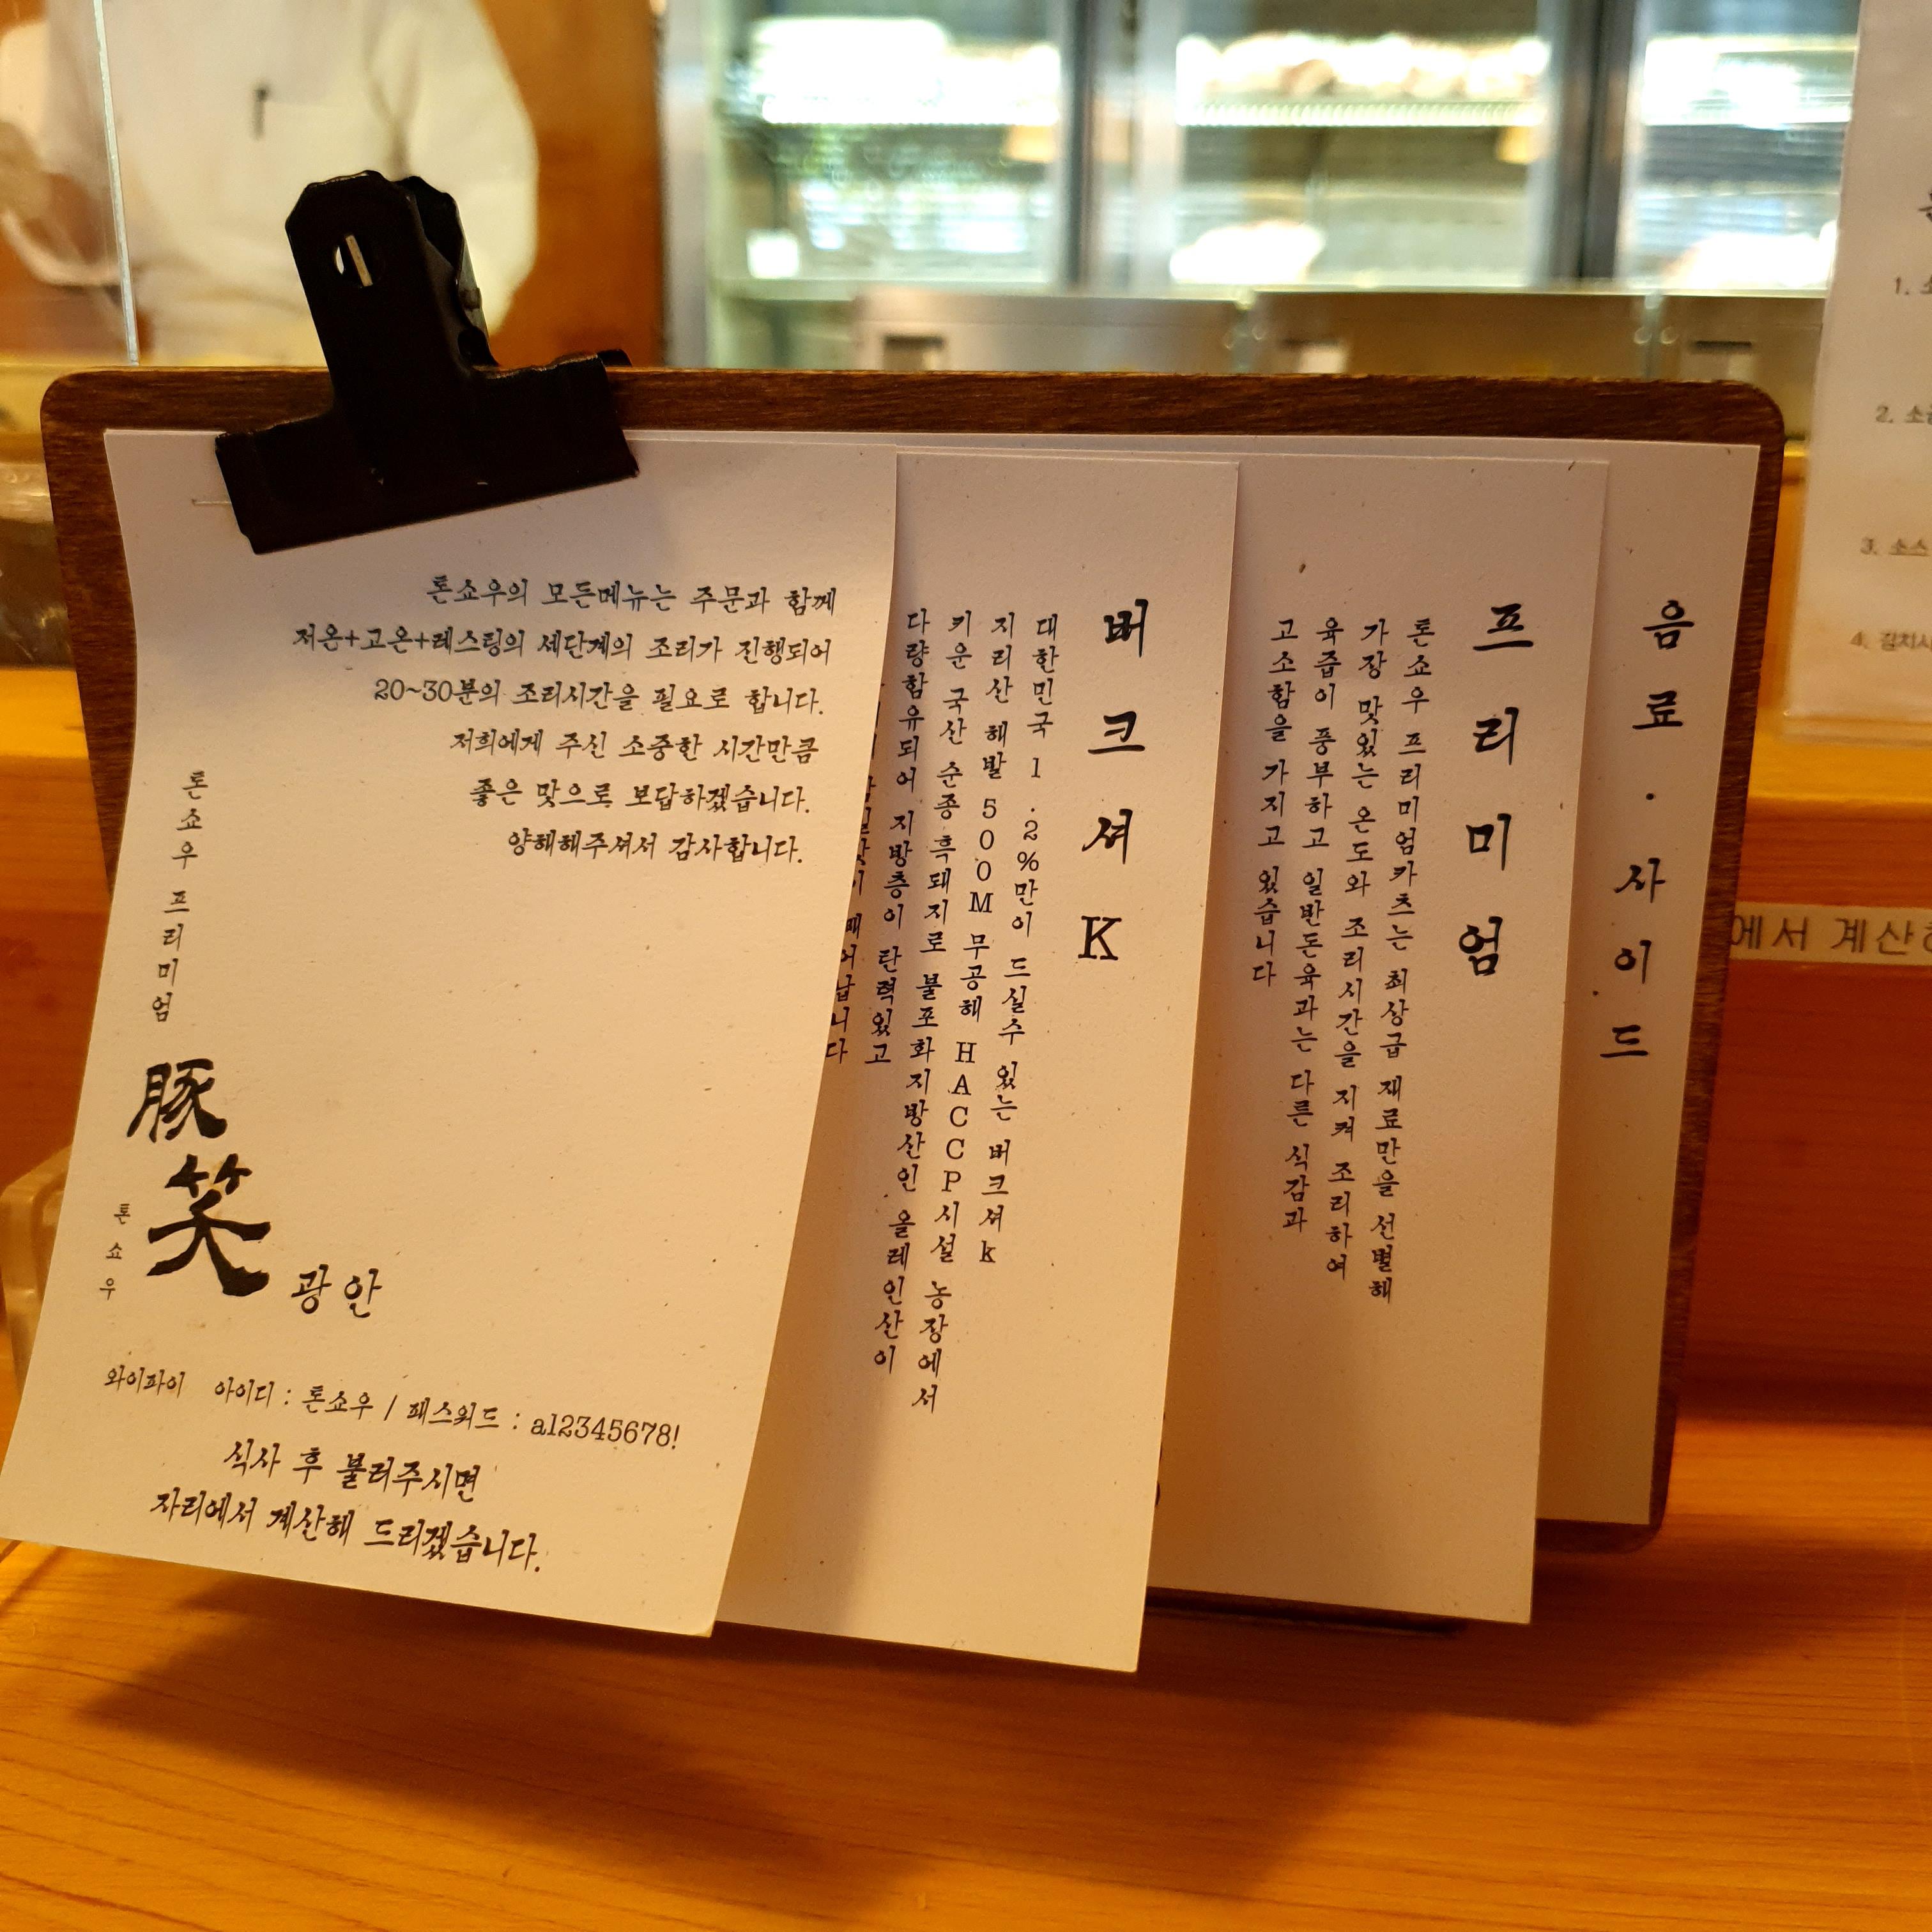 톤쇼우의 모든메뉴는 주문과 함께
저온+고온+레스팅의 세단계의 조리가 진행되어
20~30분의 조리시간을 필요로 합니다.
저희에게 주신 소중한 시간만큼
좋은 맛으로 보답하겠습니다.
양해해주셔서 감사합니다.
톤쇼우 프리미엄
豚笑
톤쇼우
광안
와이파이 아이디 : 톤쇼우 / 패스워드 : a12345678!
식사 후 불러주시면
자리에서 계산해 드리겠습니다.
버크셔K
대한민국 1.2%만이 드실수 있는 버크셔k
지리산 해발 500M 무공해 HACCP시설 농장에서
키운 국산 순종 흑돼지로 불포화지방산인 올레인산이
다량함유되어 지방층이 탄력있고
프리미엄
톤쇼우 프리미엄카츠는 최상급 재료만을 선별해
가장 맛있는 온도와 조리시간을 지켜 조리하여
육즙이 풍부하고 일반돈육과는 다른 식감과
고소함을 가지고 있습니다
음료.사이드
에서 계산
1.
2.
3. 소스
4. 김치